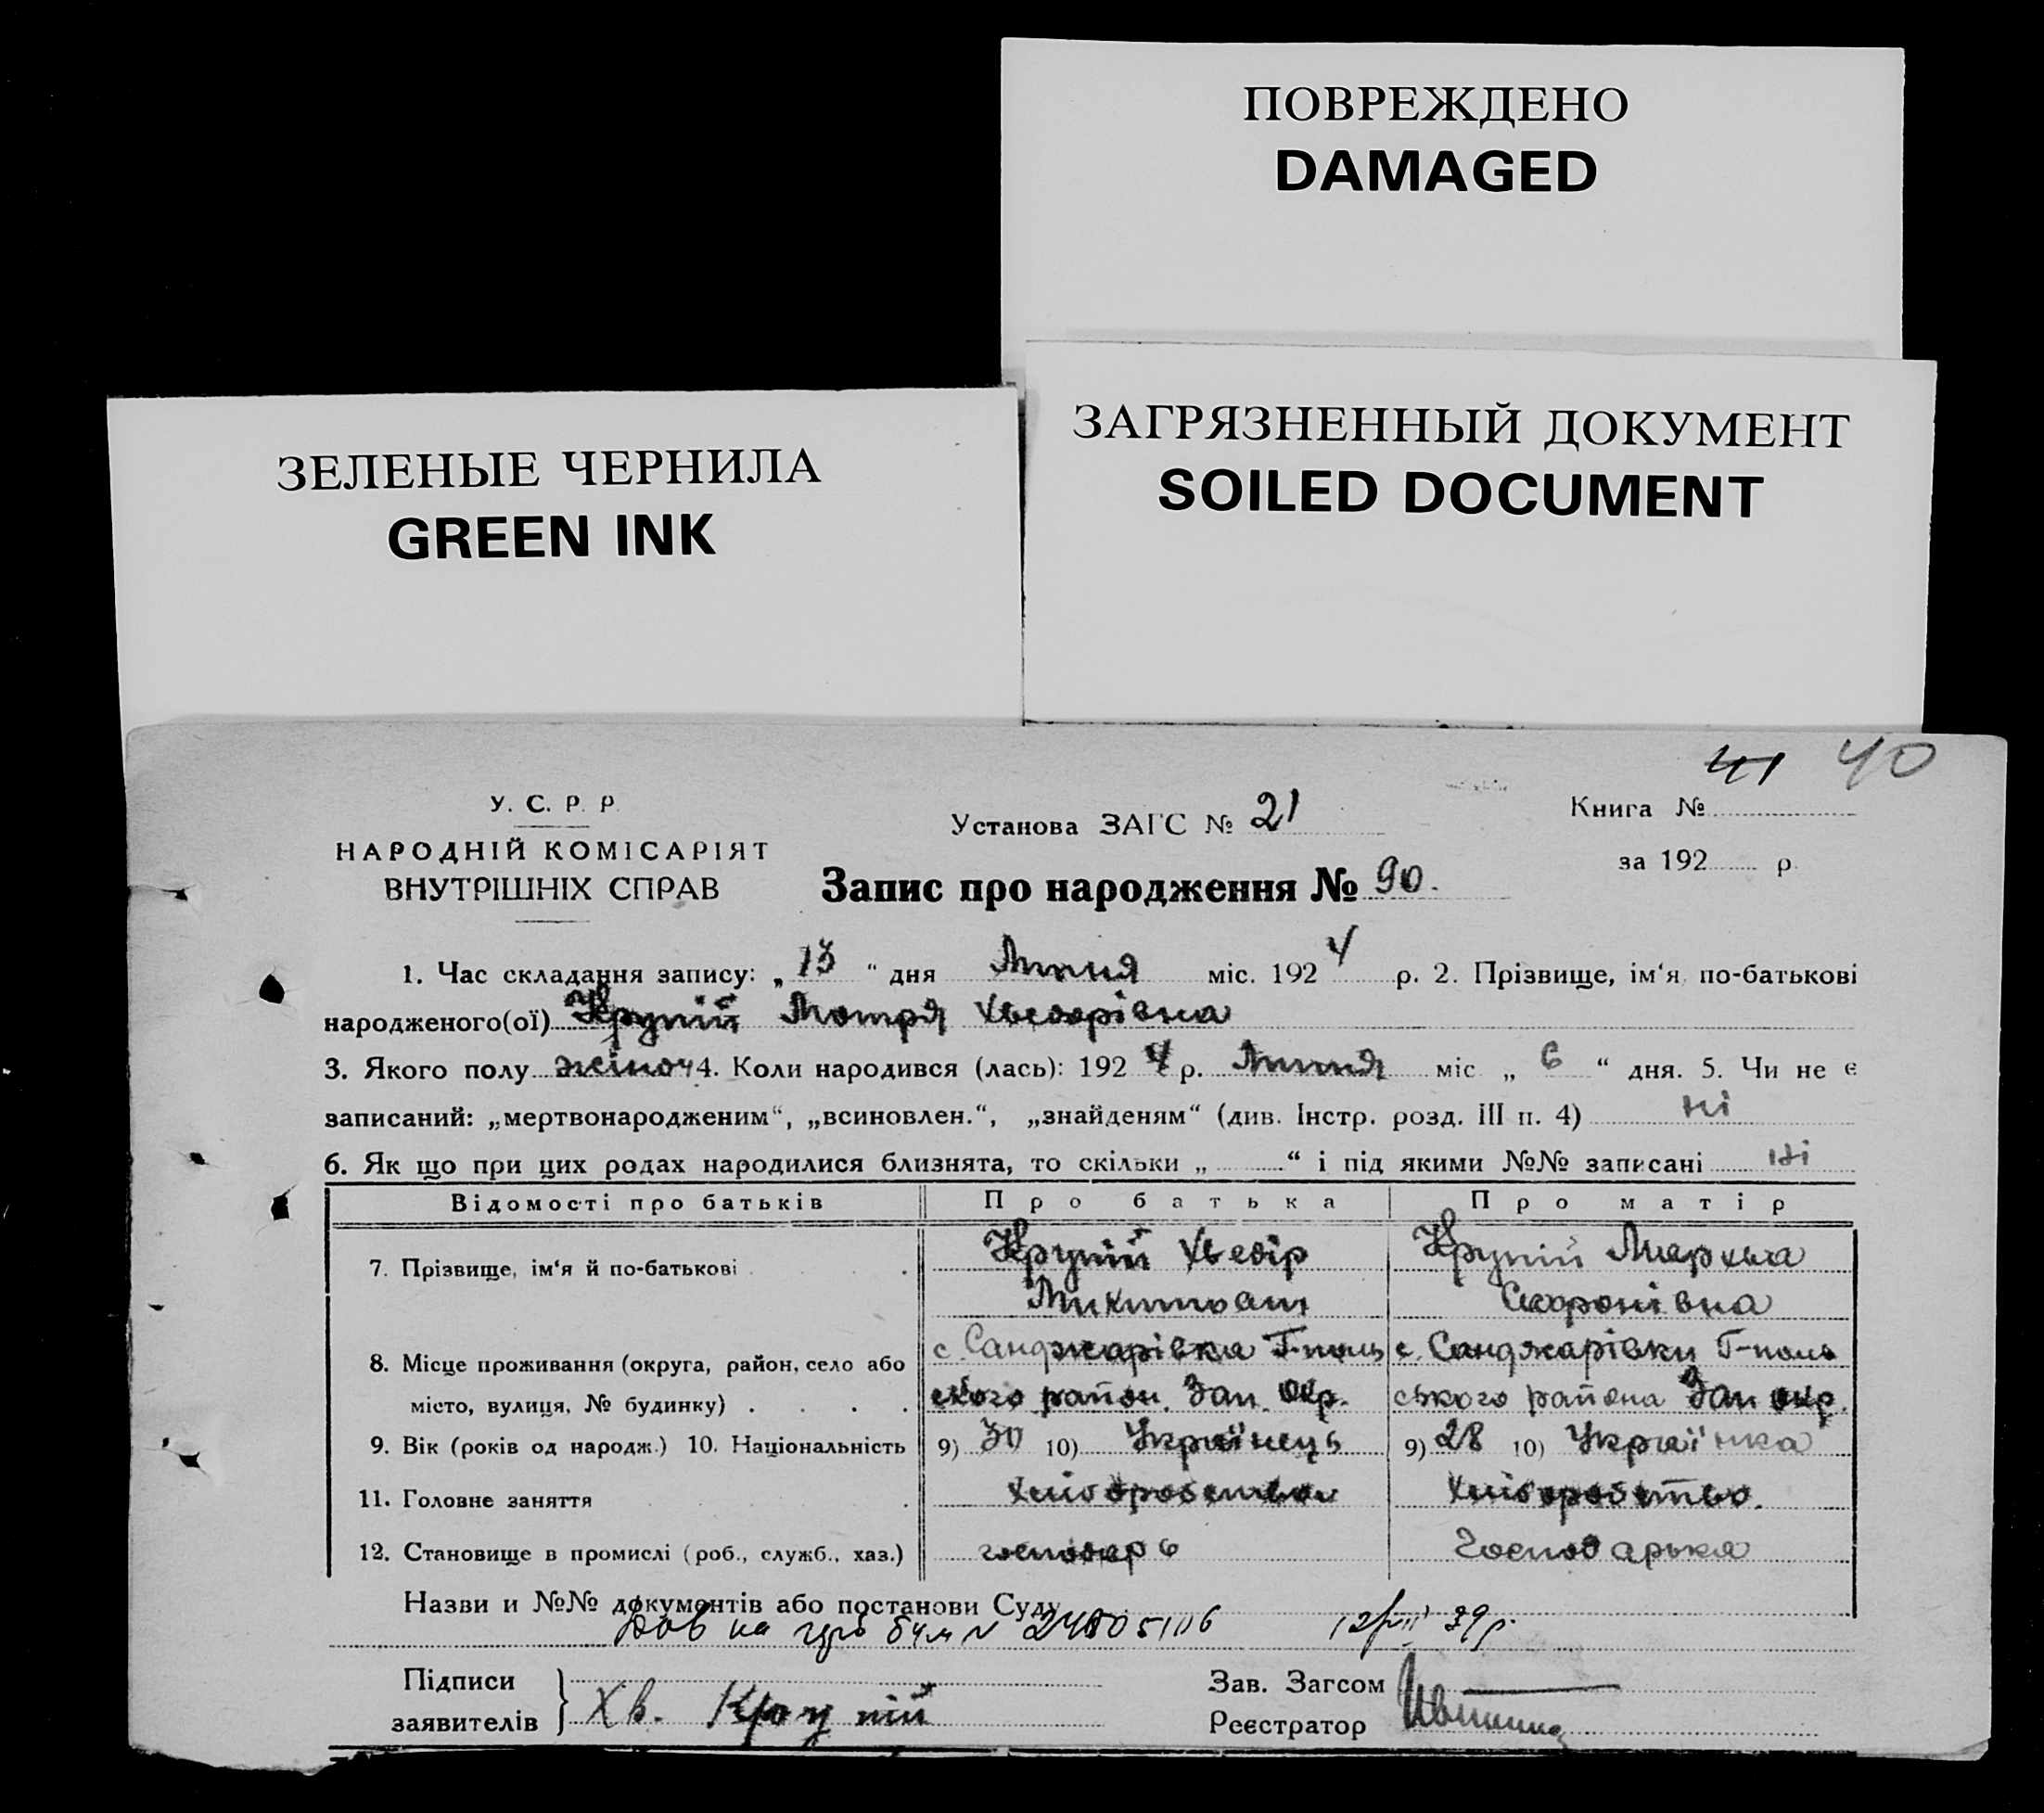 ПОВРЕЖДЕНО
DAMAGED
ЗАГРЯЗНЕННЫЙ ДОКУМЕНТ
SOILED DOCUMENT
ЗЕЛЕНЫЕ ЧЕРНИЛА
GREEN INK
41 40
У. С. Р. Р.
НАРОДНІЙ КОМІСАРІЯТ
ВНУТРІШНІХ СПРАВ
Установа ЗАГС № 21
Книга №
за 192 р.
Запис про народження № 90.
1. Час складання запису: „ 13 “ дня Липня міс. 192 4 р. 2. Прізвище, ім‘я, по-батькові
народженого(ої) Крупій Мотря Хведорівна
3. Якого полу жіноч 4. Коли народився (лась): 192 4 р. Липня міс „ 6 “ дня. 5. Чи не є
записаний: „мертвонародженим“, „всиновлен.“, „знайденям“ (див. Інстр. розд. III п. 4) ні
6. Як що при цих родах народилися близнята, то скільки „ “ і під якими №№ записані ні
Відомості про батьків Про батька Про матір
7. Прізвище, ім‘я й по-батькові Крупій Хведір Крупій
Микитович
8. Місце проживання (округа, район, село або с. Санджарівка Г-поль с. Санджарівки Г-поль
місто, вулиця, № будинку) ського район. Зап. окр. ського района Зап окр.
9. Вік (років од народж.) 10. Національність 9) 30 10) Українець 9) 28 10) Українка
11. Головне заняття хліборобство хліборобство.
12. Становище в промислі (роб., служб., хаз.) господарь Господарька
Назви и №№ документів або постанови Суду
на 39 р.
Підписи
заявителів } Хв. Крупій
Зав. Загсом
Реєстратор